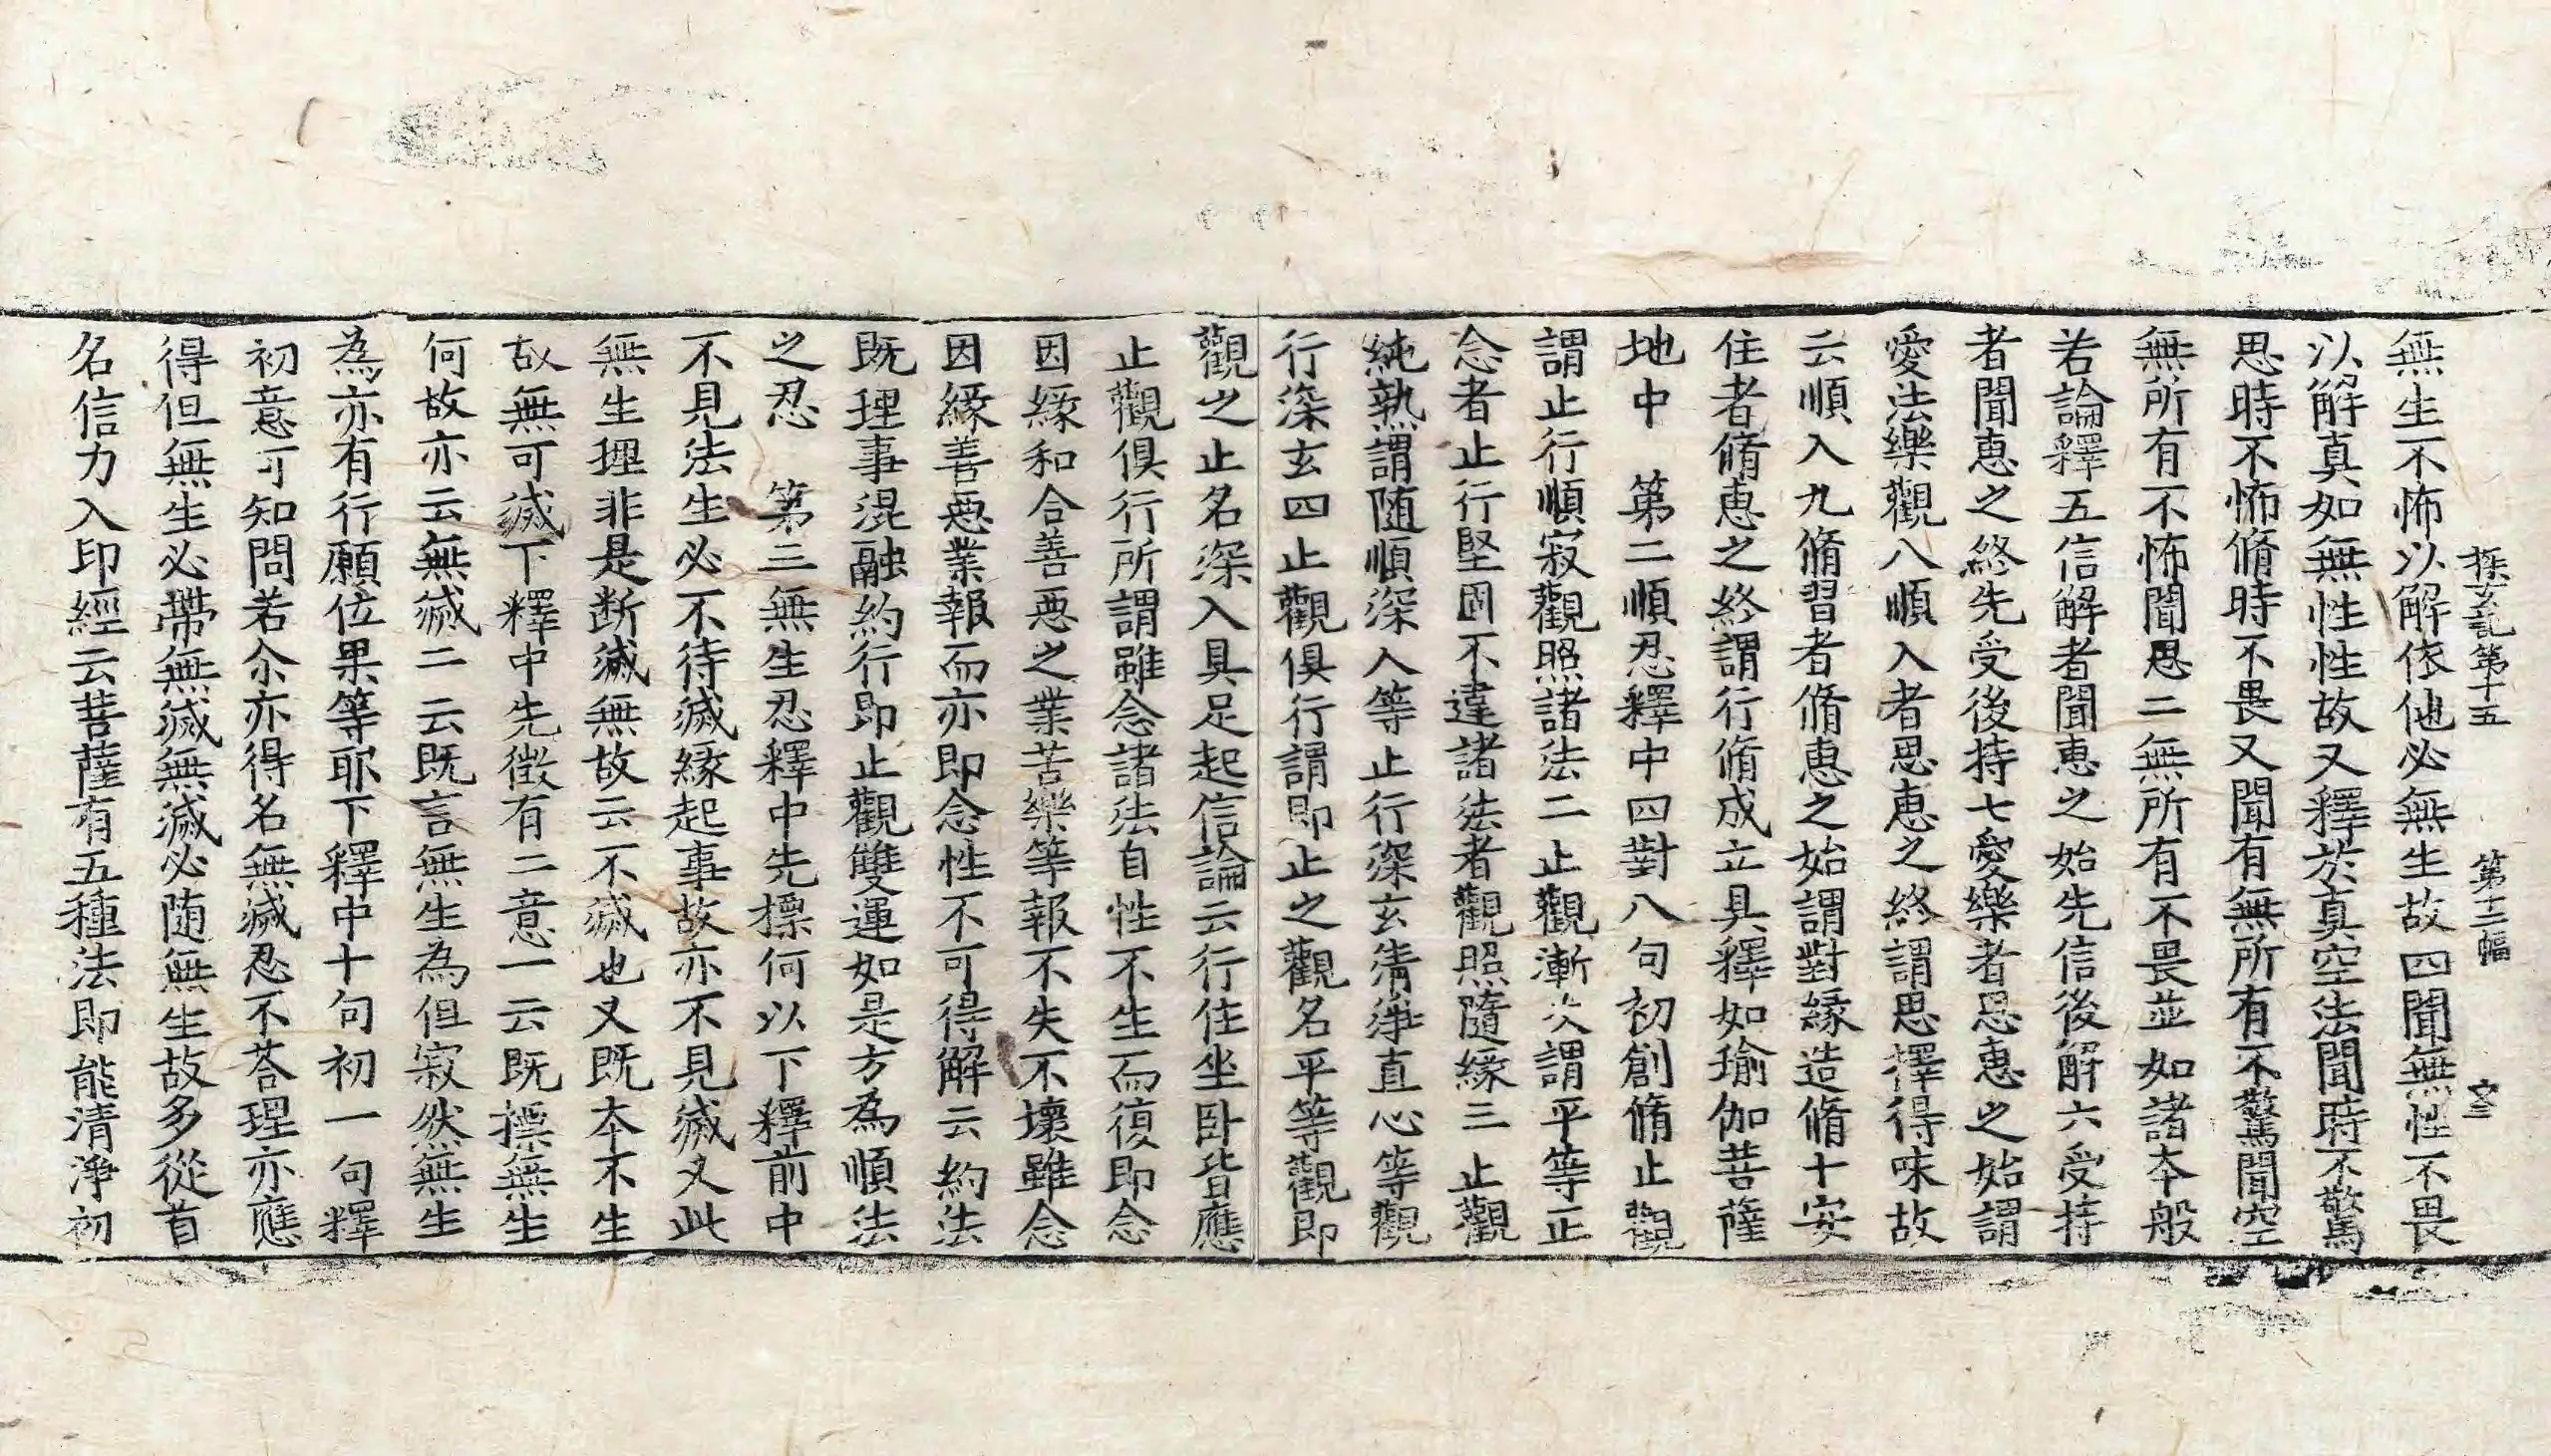 探玄記第十五　第十二幅　文三
無生不怖以解依他必無生故四聞無性不畏
以解真如無性性故又釋於真空法聞時不驚
思時不怖脩時不畏又聞有無所有不驚聞空
無所有不怖聞思二無所有不畏並如諸本般
若論釋五信解者聞惠之始先信後解六受持
者聞惠之終先受後持七愛樂者思惠之始謂
愛法樂觀八順入者思惠之終謂思擇得味故
云順入九脩習者脩惠之始謂對緣造脩十安
住者脩惠之終謂行脩成立具釋如瑜伽菩薩
地中　第二順忍釋中四對八句初創脩止觀
謂止行順寂觀照諸法二止觀漸次謂平等正
念者止行堅固不違諸法者觀照隨緣三止觀
純熟謂随順深入等止行深玄清淨直心等觀
行深玄四止觀俱行謂即止之觀名平等觀即
觀之止名深入具足起信論云行住坐卧皆應
止觀俱行所謂雖念諸法自性不生而復即念
因緣和合善惡之業苦樂等報不失不壞雖念
因緣善惡業報而亦即念性不可得解云約法
既理事混融約行即止觀雙運如是方為順法
之忍　第三無生忍釋中先標何以下釋前中
不見法生必不待滅緣起事故亦不見滅又此
無生理非是断滅無故云不滅也又既本不生
故無可滅下釋中先徵有二意一云既摽無生
何故亦云無滅二云既言無生為但寂然無生
為亦有行願位果等耶下釋中十句初一句釋
初意可知問若尒亦得名無滅忍不荅理亦應
得但無生必帶無滅無滅必随無生故多從首
名信力入印經云菩薩有五種法即能清淨初